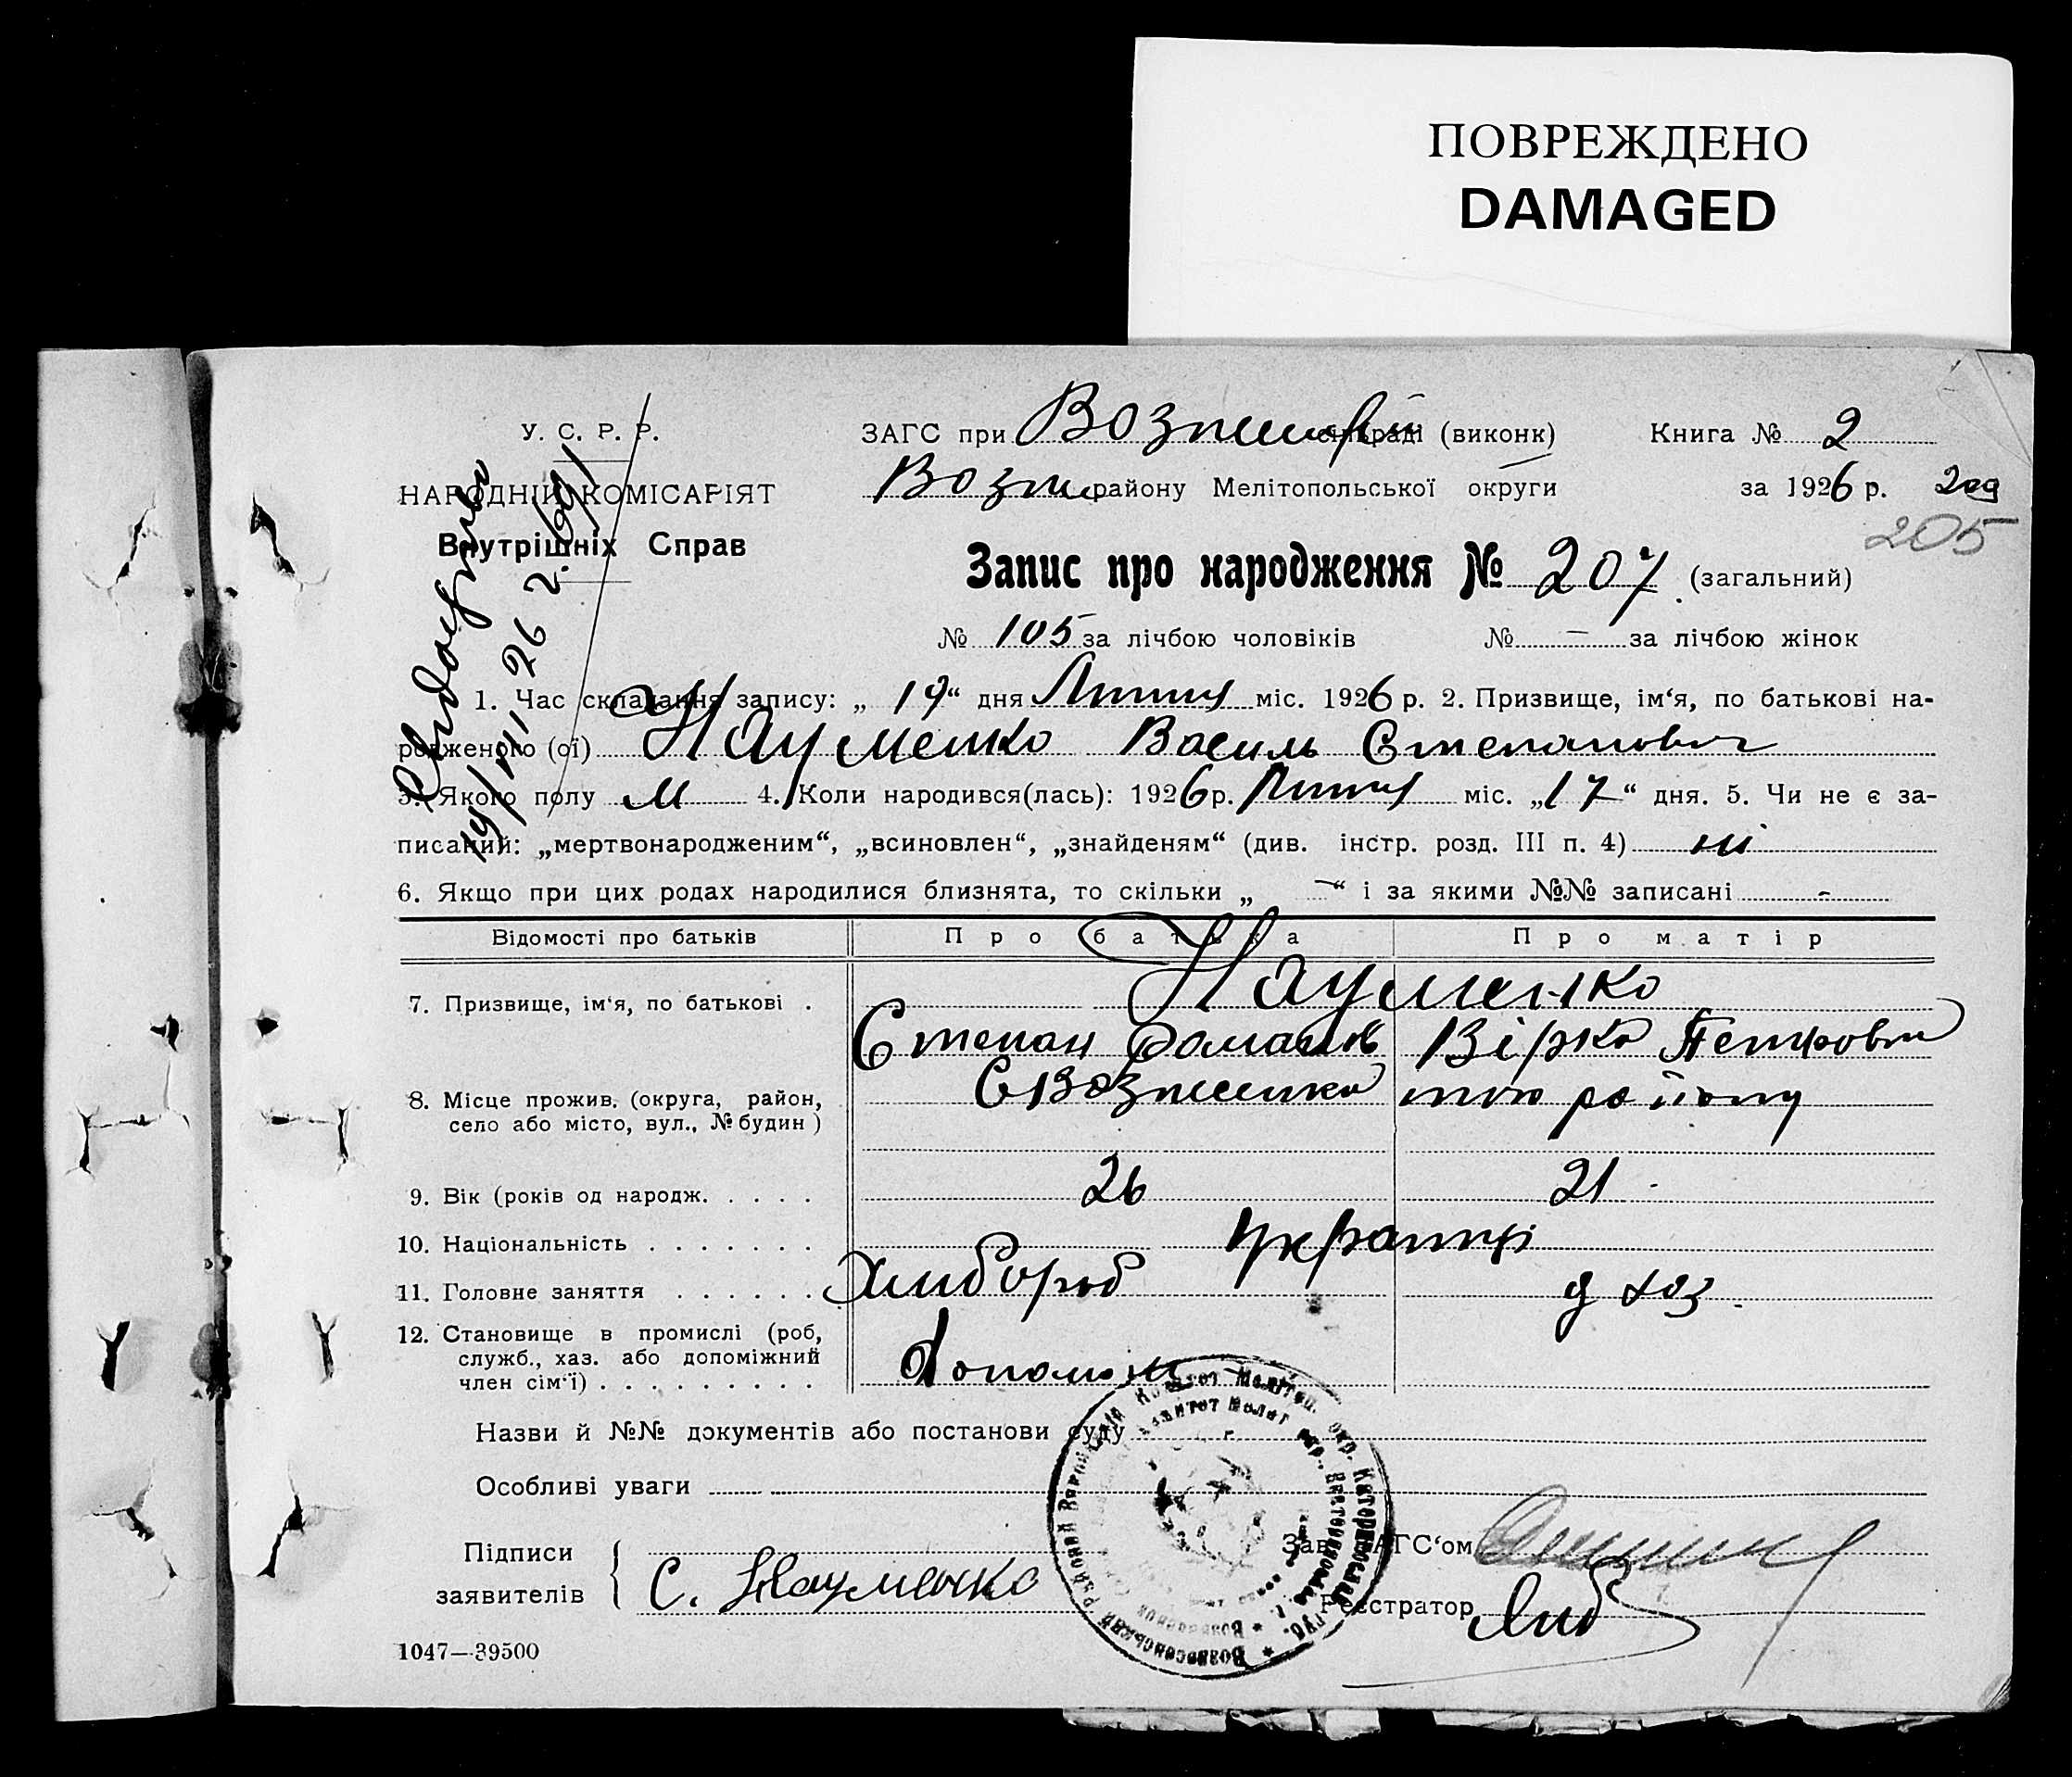 ПОВРЕЖДЕНО
DAMAGED
У. С. Р. Р.
НАРОДНІЙ КОМІСАРІЯТ
Внутрішніх Справ
ЗАГС при сільраді (виконк) Книга № 2
Возн району Мелітопольської округи за 1926 р.
205
Запис про народження № 207 (загальний)
№ 105 за лічбою чоловіків № – за лічбою жінок
1. Час складання запису: „19“ дня Липня міс. 1926 р. 2. Призвище, ім‘я, по батькові на-
родженого (ої) Науменко Василь Степанович
3. Якого полу М 4. Коли народився(лась): 1926 р. Липня міс. „17“ дня. 5. Чи не є за-
писаний: „мертвонародженим“, „всиновлен“, „знайденям“ (див. інстр. розд. III п. 4) ні
6. Якщо при цих родах народилися близнята, то скільки „ –“ і за якими №№ записані -
Відомості про батьків Про батька Про матір
7. Призвище, ім‘я, по батькові . Науменко
Степан Вірка Петровна
8. Місце прожив. (округа, район, району
село або місто, вул., № будин )
9. Вік (років од народж. . . . . 26 21
10. Національність . . . . . . . Українці
11. Головне заняття . . . . . . Хлібороб д хоз.
12. Становище в промислі (роб,
служб., хаз. або допоміжний
член сім‘ї) . . . . . . . . . Допоміж
Назви й №№ документів або постанови суду -
Особливі уваги
Підписи
заявителів
С. Науменко
Зав. ЗАГС‘ом
Реєстратор
1047—39500